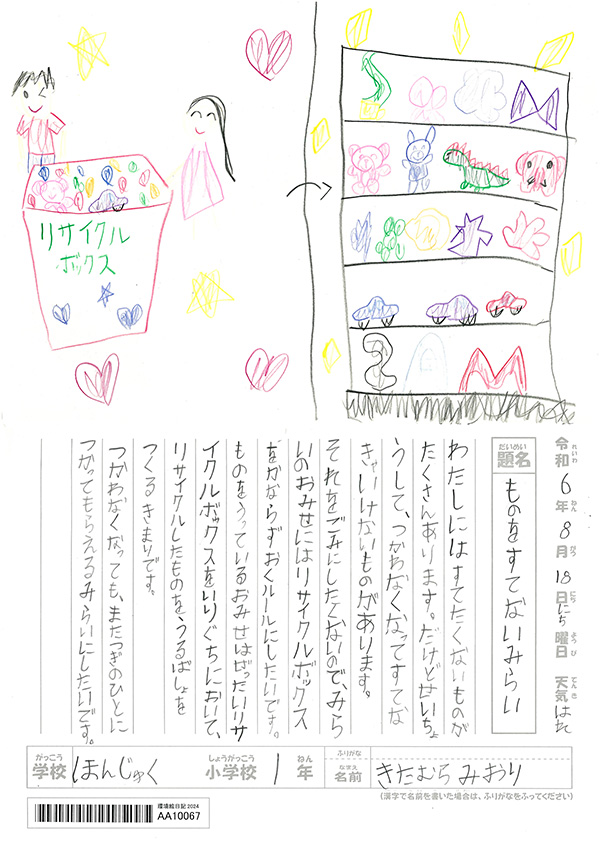 リサイクル
ボックス
令和6年8月18日にち曜日 天気 はれ
れいわ ねん がつ にち ようび てんき
だいめい
題名 ものをすてないみらい
わたしにはすてたくないものが
たくさんあります。だけどせいちょ
うして、つかわなくなってすてな
きゃいけないものがあります。
それをごみにしたくないので、みら
いのおみせにはリサイクルボックス
をかならずおくルールにしたいです。
ものをうっているおみせはぜったいリサ
イクルボックスをいりぐちにおいて、
リサイクルしたものをうるばしょを
つくるきまりです。
つかわなくなっても、またつぎのひとに
つかってもらえるみらいにしたいです。
がっこう しょうがっこう ねん ふりがな
学校 ほんじゅく 小学校 1年 名前 きたむら みおり
なまえ
(漢字で名前を書いた場合は、ふりがなをふってください)
環境絵日記 2024
AA10067